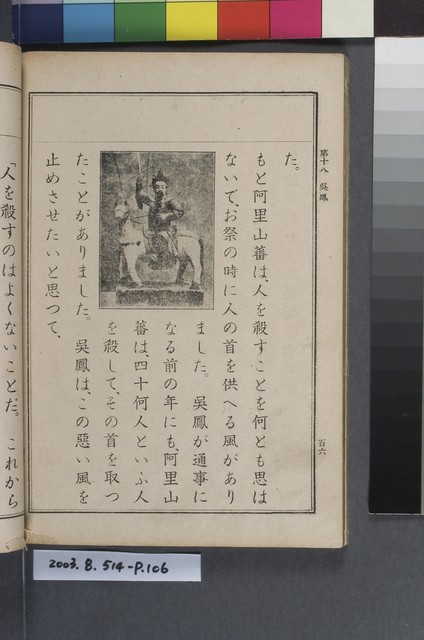 第十八 吳鳳
百六
た。
もと阿里山蕃は、人を殺すことを何とも思は
ないで、お祭の時に人の首を供へる風があり
ました。吳鳳が通事に
なる前の年にも、阿里山
蕃は、四十何人といふ人
を殺して、その首を取つ
たことがありました。吳鳳は、この惡い風を
止めさせたいと思つて、
「人を殺すのはよくないことだ。これから
2003.8.514-P.106